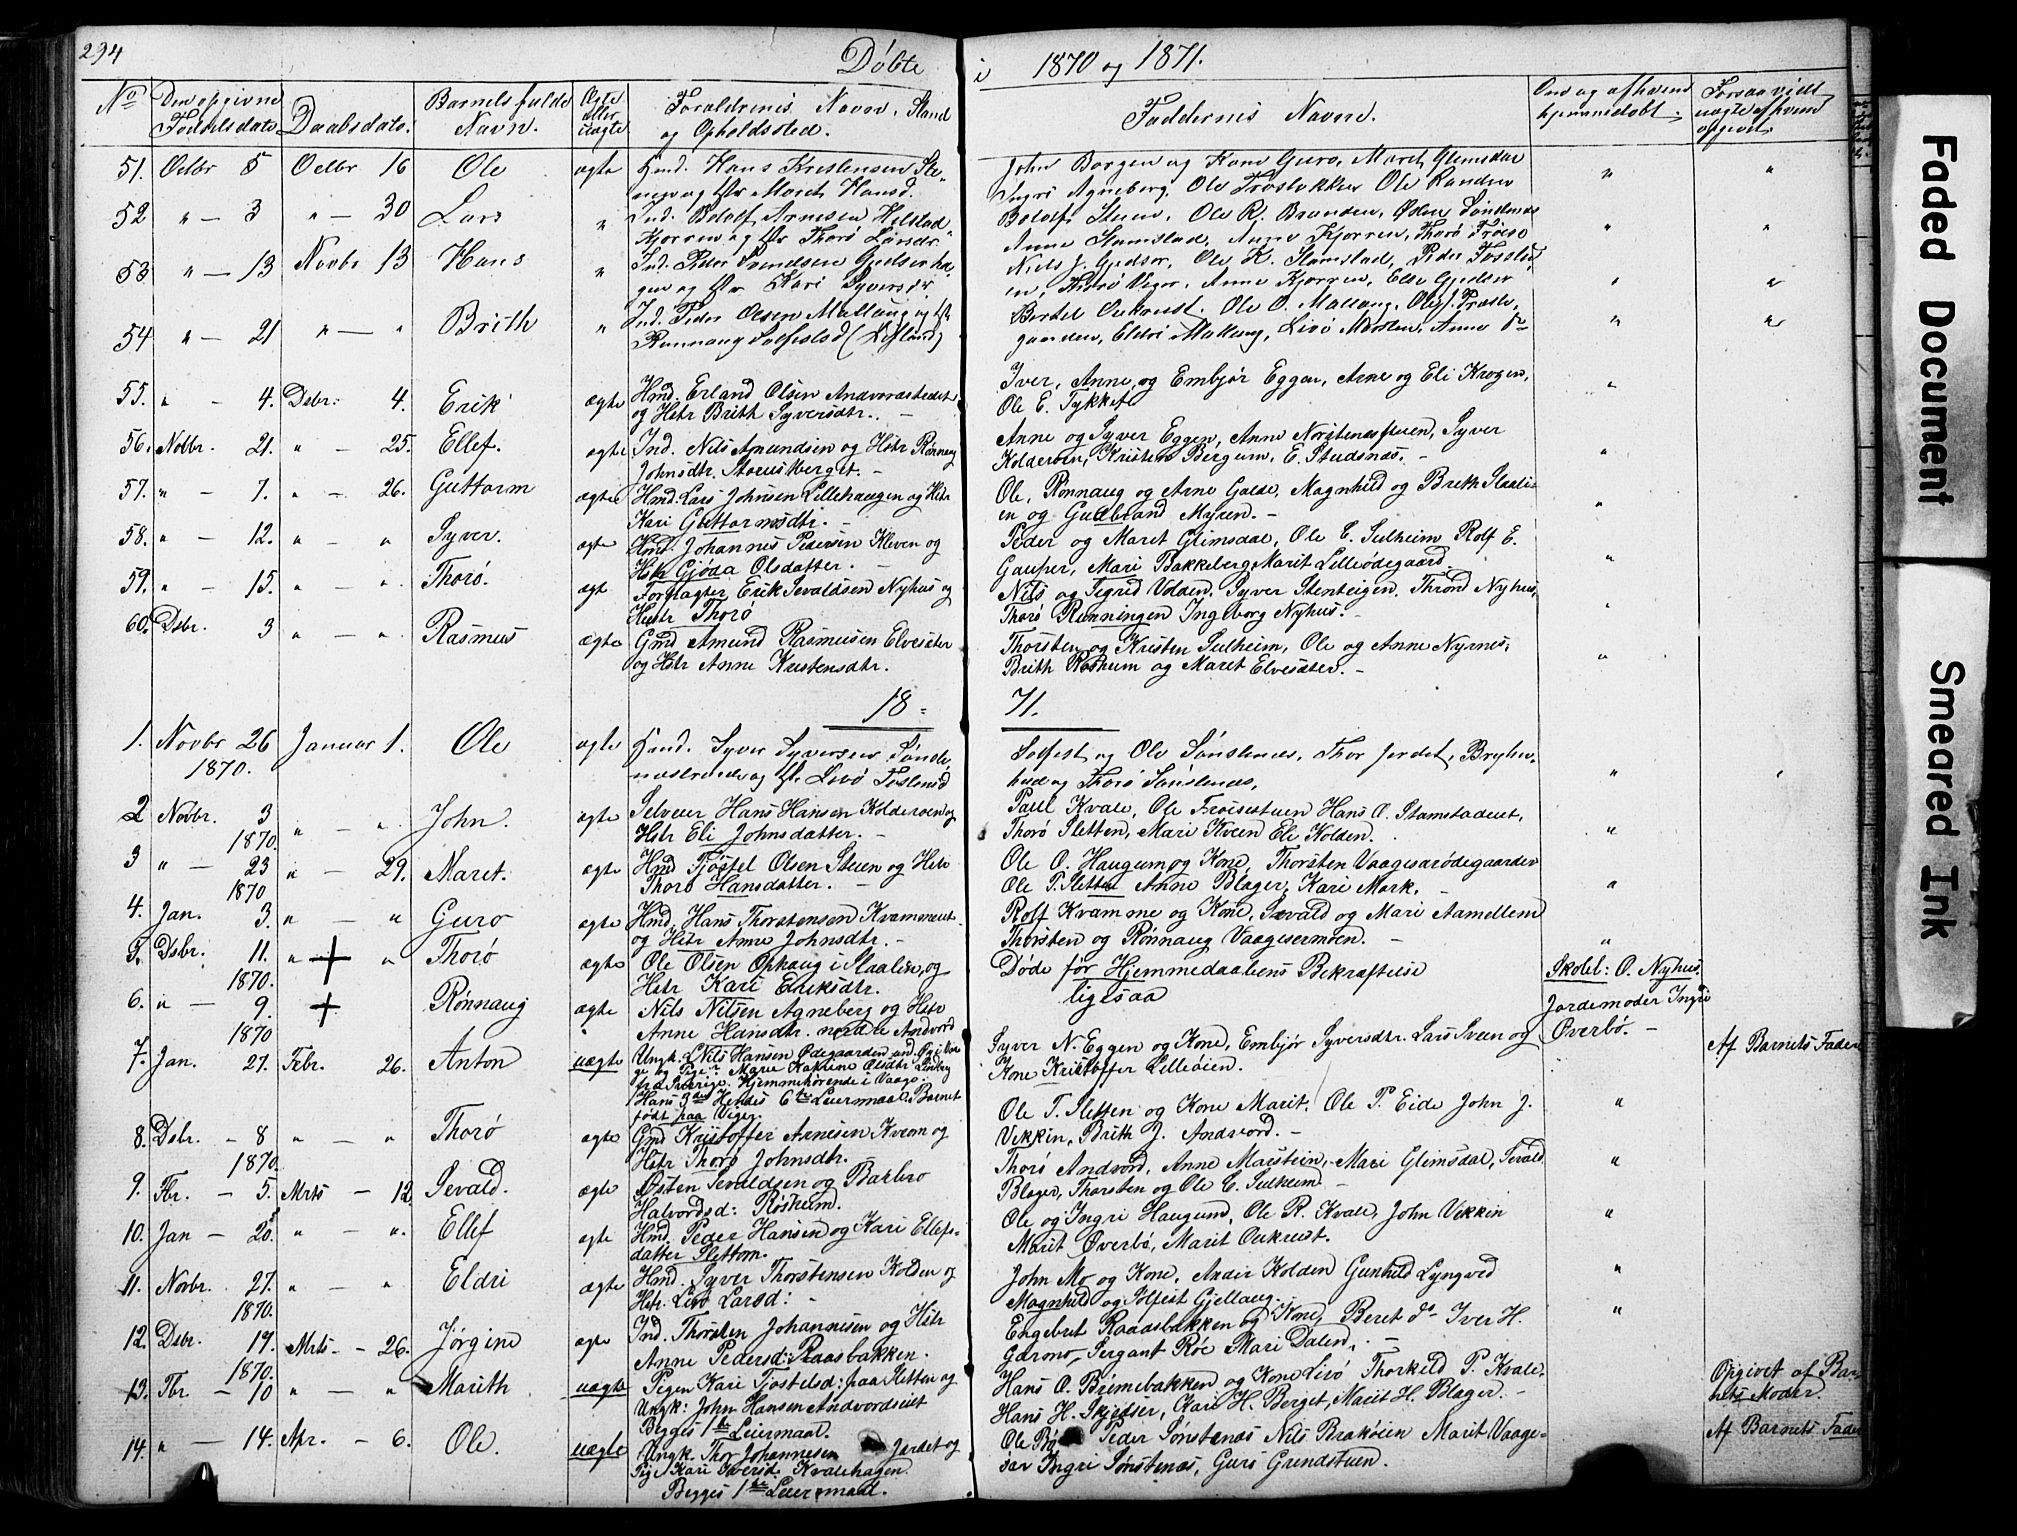 294
Døbte i 1870 og 1871.
No
Den opgivne Fødselsdato.
Daabsdato.
Barnets fulde Navn.
Ægte eller uægte
Forældrenes Navn, Stand og Opholdssted.
Faddernes Navne.
Om og af hvem hjemmedøbt.
Forsaavidt uægte af hvem opgivet.
51. Octbr 5 Octbr 16 Ole ægte Gmd. Hans Kristensen
og Hr Maret Hansd.
John Borgen og Kone Guro, Maret Glimsdal
Ingri Agneberg, Ole Ole Randen
52 " — 3 " — 30 Lars " Ind. Bolof Arnesen
Kjorren og Hr Thorø
Bolof Steen, Ole R. Branden, Østen Sønstenæs
Anne Stamstad, Anne Kjorren, Thorø
53 " — 13 Novbr 13 Hans " Ind. Peder Svendsen
og Hr Kari Syversdr.
Niels J. Gjedser, Ole K. Stamstad, Peder
Thorø Viger, Anne Kjorren, Else Gjedser
54 " — 21 " — " Brith " Ind. Peder Olsen Mallaug og Hr
Rønnaug Solfestsd
Bertel Ourust, Ole O. Mallaug, Ole J.
Eldri Mallaug, Livø Anne do
55. " - 4. Dsbr: 4. Erik ægte Hmd. Erland Olsen Andvordstedet
og Hstr Brith Syversdtr. —
Iver, Anne, og Embjør Eggen, Arne og Eli Krogen,
Ole E. Tykket
56. Novbr. 21. " - 25. Ellef. ægte Ind. Nils Amundsen og Hstr Rønnaug
Johnsdtr. Storustberget. —
Anne og Syver Eggen, Anne Norstenæsstuen, Syver
Kolderøen, Kristen Bergum, E. Studsnæs. —
57. " - 7. " — 26. Guttorm ægte Hmd. Lars Johnsen Lillehaugen og Hstr
Kari Guttormsdtr. —
Ole, Rønnaug og Arne Galde, Magnhild og Brith Slaali-
en og Gudbrand Myren. —
58. " - 12. " - " Syver. ægte Hmd. Johannes Pedersen Kleven og
Hstr Gjøda Olsdatter. —
Peder og Maret Glimsdal, Ole E. Sulheim Rolf E.
Gaupar, Mari Bakkeberg Marit Lilleødegaard.
59. " - 15. " - " Thorø. ægt Forpagter Erik Sevaldsen Nyhus og
Hustr Thorø
Nils og Sigrid Udden, Syver Stenteigen, Thrond Nyhus,
Thorø Rønningen Ingeborg Nyhus. —
60. Dsbr. 3 " — " Rasmus ægte Gmd Amund Rasmusen Elvesæter
og Hstr Anne Kristensdtr.
Thorsten og Kristen Sulheim, Ole og Anne Nyrnes,
Brith Røshum og Maret Elvesæter. —
18 = 71.
1. Novbr 26 1870. Januar 1. Ole ægte Gmd. Syver Syversen
og Hr Livø
Solfest og Ole Sønstenæs, Thor Jordet,
og Thorø Sønstenæs,
2 Novbr. 3 1870. " - " John. ægte Selveier Hans Hansen Kolderøen og
Hstr Eli Johnsdatter. —
Paul Kvale, Ole Frøisestuen Hans O. Stamstadeiet,
Thorø Sletten, Mari Kveen Eli Kolden.
3 " — 23 1870 " — 29. Maret. ægte Hmd Tjøstel Olsen Steen og Hstr
Thorø Hansdatter. —
Ole O. Haugum og Kone, Thorsten Vaagesarødegaarden
Ole P. Sletten Anne Blager, Kari Mork. —
4. Jan. 3. " — " Guro ægte Hmd. Hans Thorstensen Kvammeeiet
og Hstr Anne Johnsdtr. —
Rolf Kvamme og Kone, Sevald og Mari Aamellem
Thorsten og Rønnaug Vaagesarmoen. —
5. Dsbr. 11. 1870. " + " Thorø ægte Ole Olsen Ophaug i Slaalien, og
Hstr Kari Eriksdtr.
Døde før Hjemmedaabens Bekræftelse
Skolel: O. Nyhus.
6. " — 9. 1870 + Rønnaug ægte Nils Nilsen Agneberg og Hstr
Anne Hansdtr. nordre Andvord
ligesaa
Jordemoder Ingri
Øverbø. —
7. Jan. 27. Febr. 26. Anton uægte Ungk. Nils Hansen Ødegaarden
og Pige: Marie Katrine Olsdtr Lindberg
fra Sverige. Hjemmehørende i Vaage.
Hans 3die Hendes 6te Leiermaal. Barnet
født paa Viger.
Syver N. Eggen og Kone, Embjør Syversdtr. Lars Sveen og
Kone Kristoffer Lilleøien.
Af Barnets Fader
8. Dsbr. - 8 1870 " — " Thorø ægte Gmd Kristoffer Arnesen Kveom og
Hstr Thorø Johnsdtr.
Ole T. Sletten og Kone Marit. Ole P. Eide John J.
Vekkin, Brith J. Andvord. —
9. Fbr. - 5. Mrts - 12. Sevald. ægte Østen Sevaldsen og Barbro
Halvordsd: Røsheim.
Thorø Andvord, Anne Marstein, Mari Glimsdal, Sevald
Blager, Thorsten og Ole E. Sulheim —
10. Jan — 20. " — ". Ellef ægte Hmd. Peder Hansen og Kari Ellefs-
datter Slettom.
Ole og Ingri Haugum, Ole R. Kvale, John Vekkin
Marit Øverbø, Marit Ourust.
11. Novbr. 27. 1870. " — " Eldri ægte Hmd. Syver Thorstensen Kolden og
Hstr. Livø Larsd: —
John Mo og Kone, Ander Kolden Gunhild Lyngved
Magnhild og Solfest Gjellaug.
12. Dsbr. 19. 1870. Mrts - 26. Jørgine ægte Ind. Thorsten Johannesen og Hstr
Anne Pedersd: Raasbakken.
Engebret Raaasbakken og Kone, Beret do Iver H.
Garmo, Sergant Røe Mari Dalen. —
13. Fbr — 10 " — " Marith uægte Pigen Kari Tjostelsd: paa Sletten og
Ungk: John Hansen Andvordseiet
Begges 1ste Leiermaal.
Hans O. Brimebakken og Kone Livø Thorkild P. Kvale,
Hans H. Skjedser, Kari H. Berget, Marit H. Blager. —
Opgivet af Bar-
nets Moder.
14. " — 14. Apr. - 6. Ole. uægte Ungk. Thor Johannesen Jordet og
Pige Kari Iversd. Kvalehagen.
Begges 1ste Leiermaal.
Ole Peder Sønstenæs Nils Brakøien Marit Vaage-
sar Ingri Sønstenæs, Guro Grindstuen.
Af Barnets Fader
Faded Document
Smeared Ink